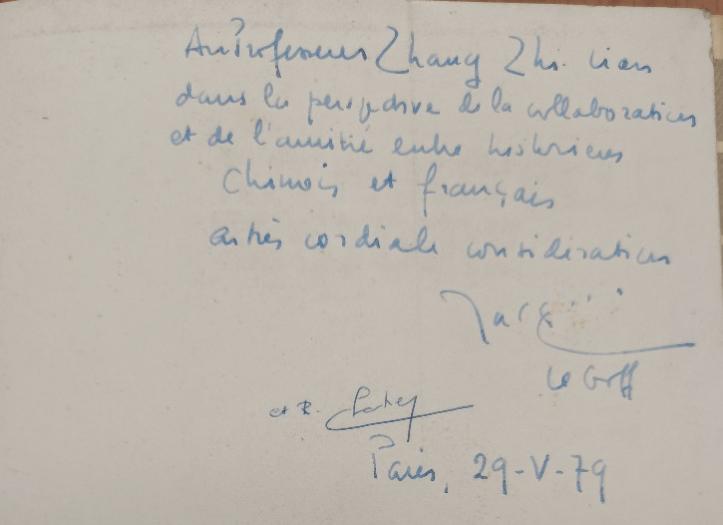 Au Professeur Zhang Zhi. lian
dans la perspective de la collaboration
et de l'amitié entre historiens
Chinois et français
très cordiale considération
Jacques
Le Goff
et R.
Paris, 29-V-79